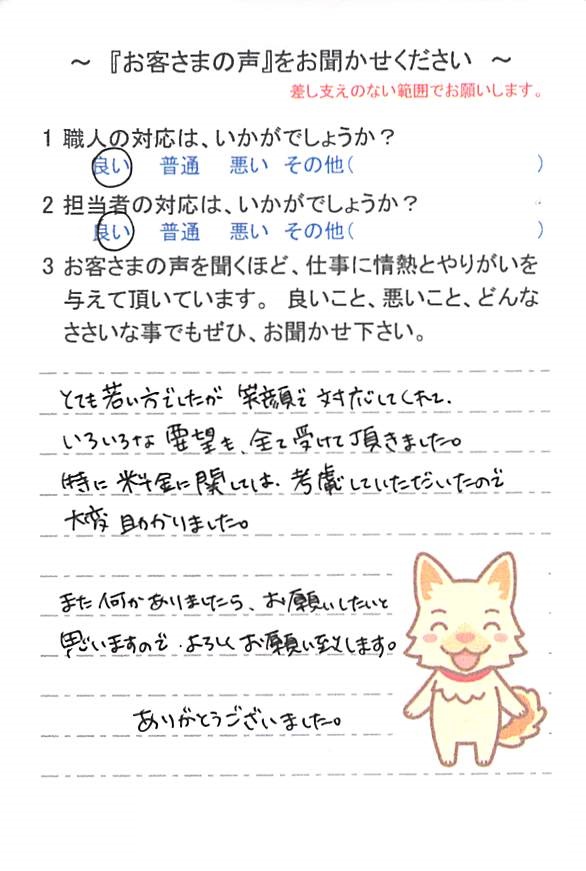 ～ 『お客さまの声』をお聞かせください ～
差し支えのない範囲でお願いします。
1 職人の対応は、いかがでしょうか？
良い 普通 悪い その他( )
2 担当者の対応は、いかがでしょうか？
良い 普通 悪い その他( )
3 お客さまの声を聞くほど、仕事に情熱とやりがいを
与えて頂いています。 良いこと、悪いこと、どんな
ささいな事でもぜひ、お聞かせ下さい。
とても若い方でしたが 笑顔で 対応してくれて、
いろいろな 要望も、全て受けて頂きました。
特に 料金に関しては、考慮していただいたので
大変 助かりました。
また何かありましたら、お願いしたいと
思いますので、よろしくお願い致します。
ありがとうございました。